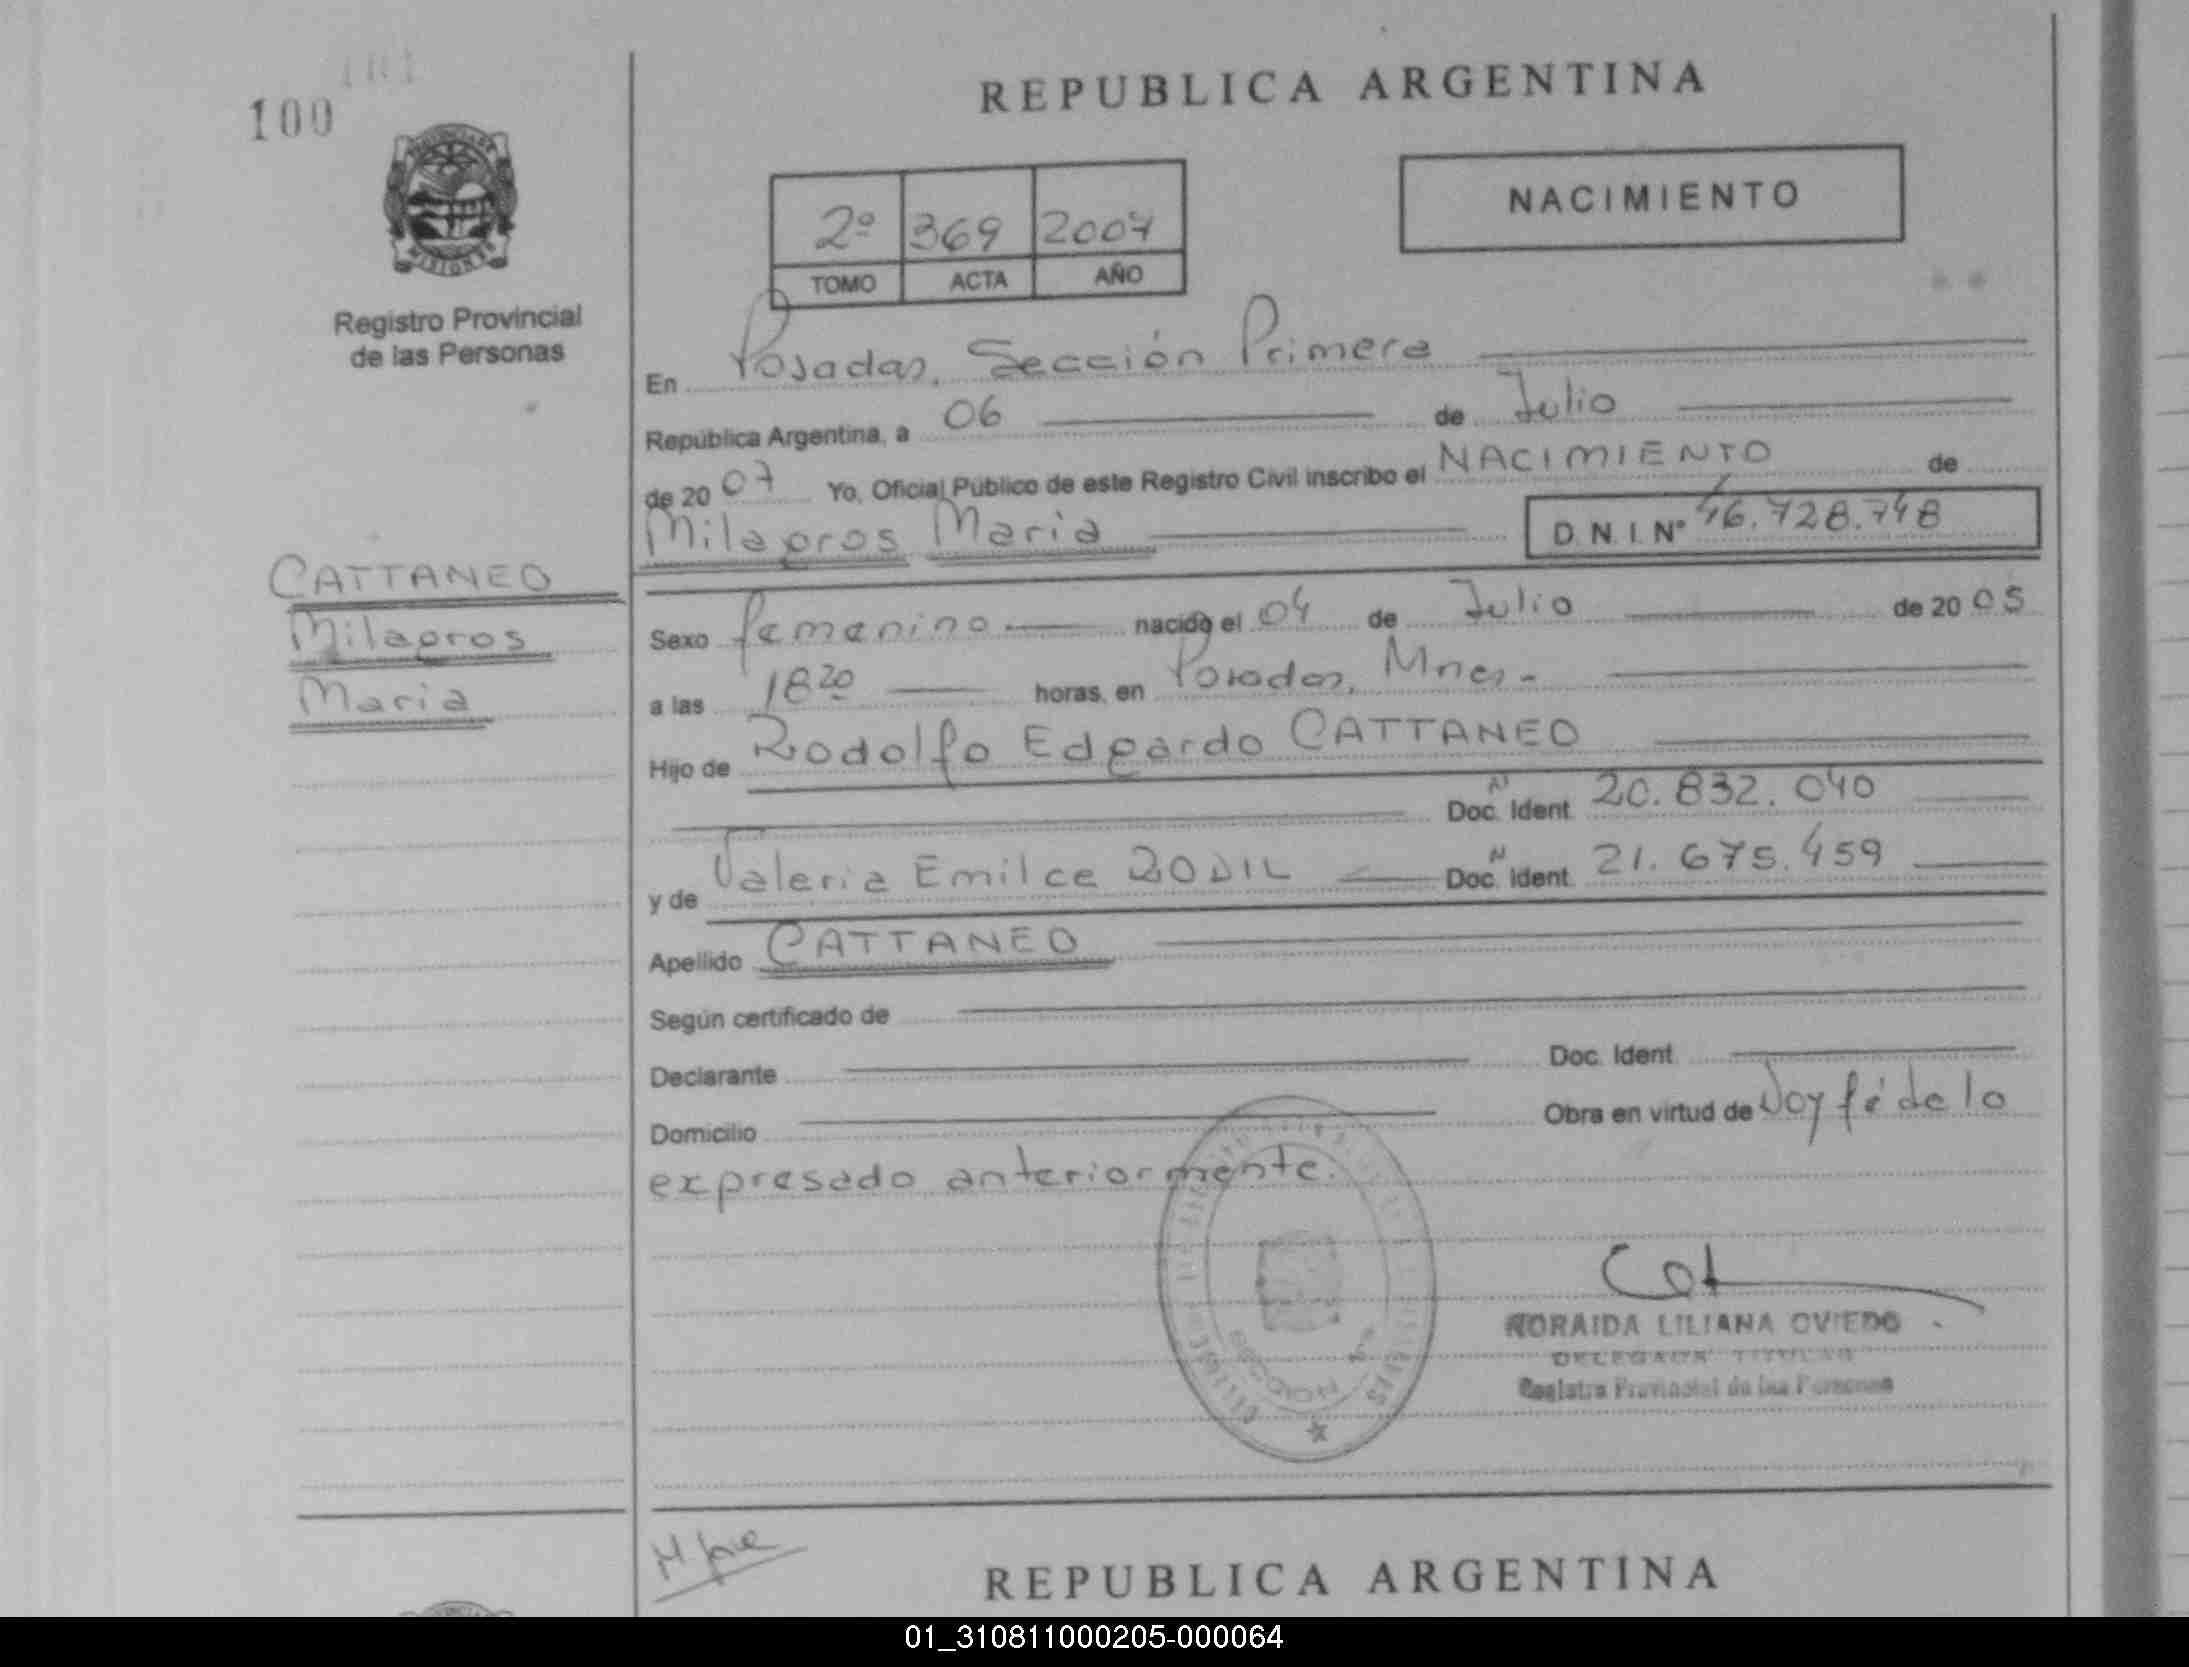 100
101
MISIONES
Registro Provincial
de las Personas
REPUBLICA ARGENTINA
2º 369 2007
TOMO ACTA AÑO
NACIMIENTO
En Posadas, Sección Primera
República Argentina, a 06 de Julio
de 2007 Yo, Oficial Público de este Registro Civil inscribo el NACIMIENTO de
Milagros Maria D.N.I. Nº 46.728.748
CATTANEO
Milagros
Maria
Sexo femenino nacido el 04 de Julio de 2005
a las 18 20 horas, en Posadas, Mnes.-
Hijo de Rodolfo Edgardo CATTANEO
Doc. Ident. N 20.832.040
y de Valeria Emilce ZODIL Doc. Ident. N 21.675.459
Apellido CATTANEO
Según certificado de
Declarante Doc. Ident.
Domicilio Obra en virtud de Doy fé de lo
expresado anteriormente.
SECCION
NORAIDA LILIANA OVIEDO
DELEGADA TITULAR
Registro Provincial de las Personas
REPUBLICA ARGENTINA
01_310811000205-000064